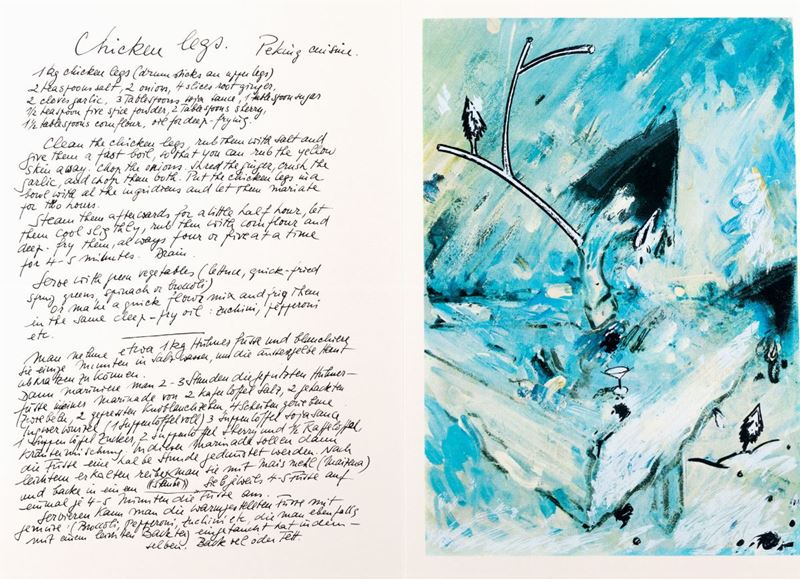 Chicken legs. Peking cuisine.
1 kg chicken legs (drumsticks an upper legs)
2 teaspoons salt, 2 onions, 4 slices root ginger,
2 cloves garlic, 3 Tablespoons soja sauce, 1 tablespoon sugar
½ teaspoon five spice powder, 2 Tablespoons sherry,
1½ tablespoons cornflour, oil for deep-frying.
Clean the chicken legs, rub them with salt and
give them a fast boil, so that you can rub the yellow
skin away. Chop the onions. Shred the ginger, crush the
garlic, and chop them both. Put the chicken legs in a
bowl with al the ingridiens and let them mariate
for two hours.
Steam them afterwards for a little half hour, let
them cool slightly, rub them with cornflour and
deep-fry them, always four or five at a time
for 4-5 minutes. Drain.
Serve with green vegetables (lettuce, quick-fried
spring greens, spinach or broccoli)
Or make a quick flour mix and frig them
in the same deep-fry oil: zuchini, pepperoni
etc.
Man nehme etwa 1 kg Hühner füsse und blanchiere
sie einige Minuten in Salzwasser, um die äussere gelbe Haut
abkratzen zu können.
Dann mariniere man 2-3 Stunden die geputzten Hühner-
füsse in einer Marinade von 2 Kaffelöffel Salz, 2 gehackten
Zwiebeln, 2 gepressten Knoblauchzehen, 4 Scheiben geriebene
Ingwerwurzel (1 Suppenlöffel voll) 3 Suppenlöffel Sojasauce
1 Suppenlöffel Zucker, 2 Suppenlöffel Sherry und ½ Kaffelöffel
Kräutermischung. In dieser Marinade sollen dann
die Füsse eine halbe Stunde gedünstet werden. Nach
leichtem erkalten reibe man sie mit Maismehl (Maizena)
und backe in einem jeweils 4-5 Füsse auf
einmal je 4-5 Minuten die Füsse aus.
Servieren kann man die warmgestellten Füsse mit
gemüse (Broccoli, Pepperoni, Zuchini etc, die man ebenfalls
mit einem leichten Backteig eingetaucht hat in dem-
selben. Backoel oder Fett.